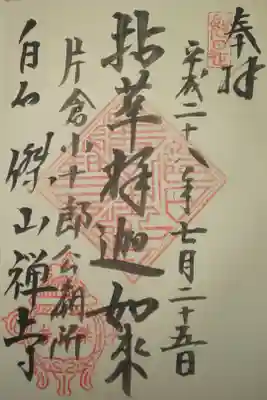 奉拝
平成二十八年七月二十五日
拈華釋迦如来
片倉小十郎公廟所
白石 傑山禅寺